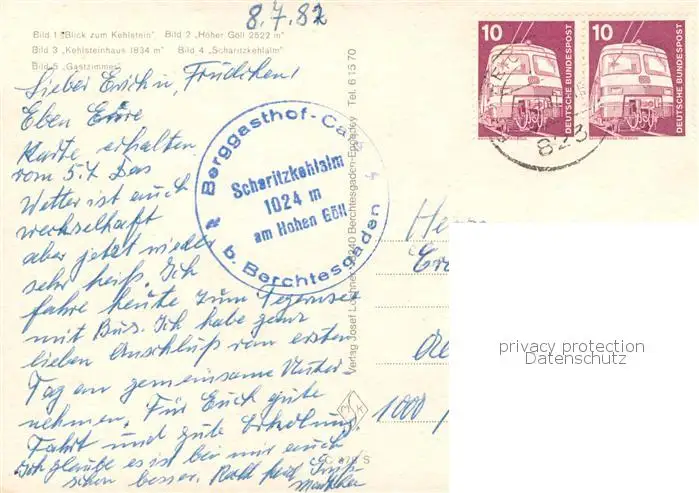 8.7.82
Bild 1 "Blick zum Kehlstein" Bild 2 "Hoher Göll 2522 m"
Bild 3 "Kehlsteinhaus 1834 m" Bild 4 "Scharitzkehlalm"
Bild 5 "Gastzimmer"
10 DEUTSCHE BUNDESPOST
10 DEUTSCHE BUNDESPOST
823
Lieber Erich u. Frudchen!
Eben Eure
Karte erhalten
vom 5.7. Das
Wetter ist auch
wechselhaft
aber jetzt wieder
sehr heiß. Ich
fahre heute zum Tegernsee
mit Bus. Ich habe ganz
lieben Anschluß vom ersten
Tag an gemeinsame Unter
nehmen. Für Euch gute
Fahrt und gute Erholung.
Ich glaube es ist bei mir auch
schon besser.
Berggasthof-Ca
Scharitzkehlalm
1024 m
am Hohen Göll
b. Berchtesgaden
Verlag Josef Lochner 8240 Berchtesgaden Tel. 6 15 70
1000
privacy protection
Datenschutz